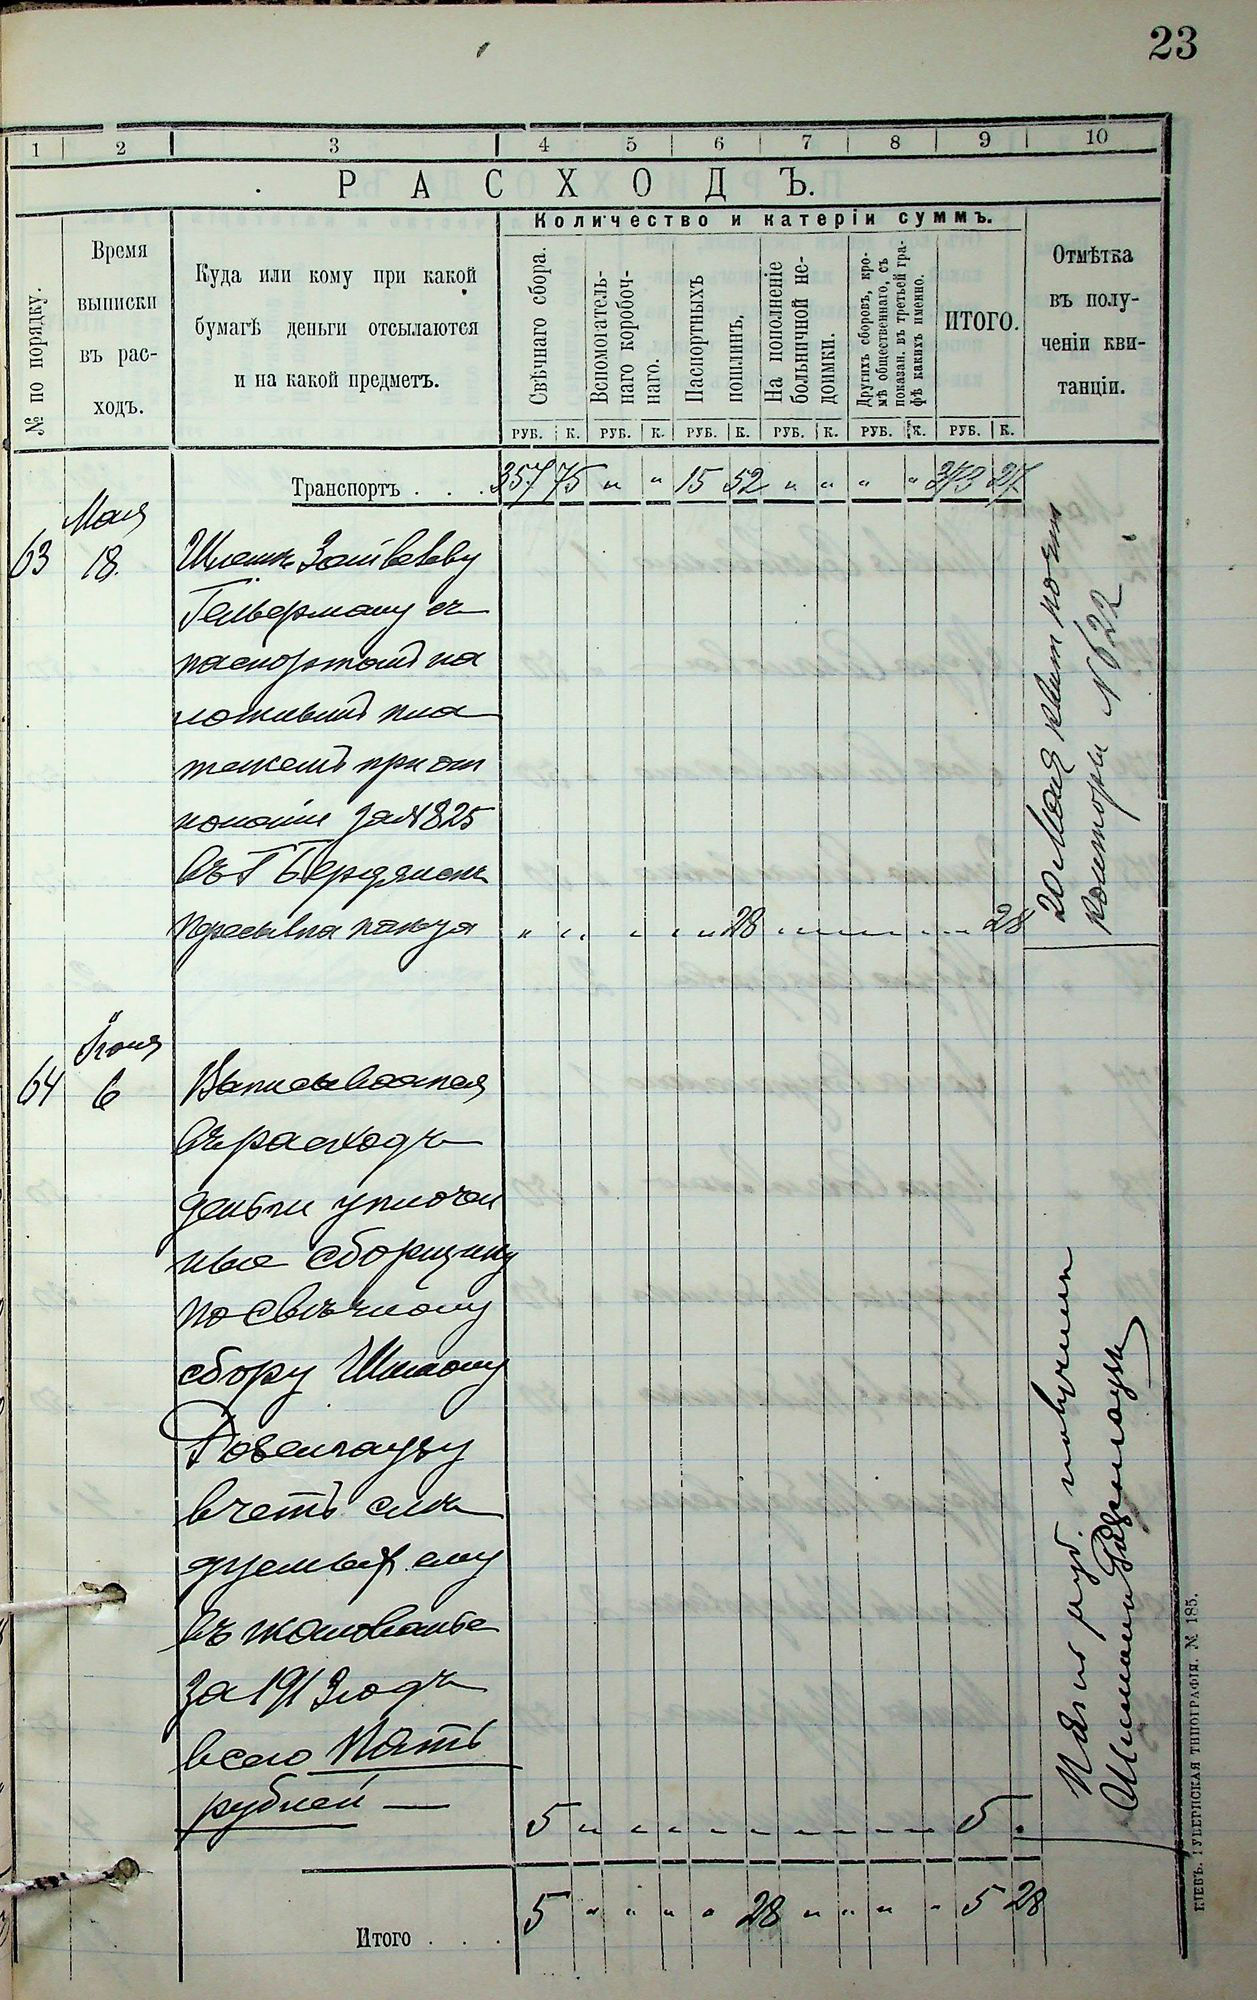 23
1 2 3 4 5 6 7 8 9 10
РАСХОДЪ.
Количество и катеріи суммъ.
№ по порядку.
Время
выписки
въ рас-
ходъ.
Куда или кому при какой
бумагѣ деньги отсылаются
и на какой предметъ.
Свѣчнаго сбора.
Вспомогатель-
наго коробоч-
наго.
Паспортныхъ
пошлинъ.
На пополненіе
больничной не-
доимки.
Другихъ сборовъ, кро-
мѣ общественнаго, съ
показан. въ третьей гра-
фѣ какихъ именно.
ИТОГО.
Отмѣтка
въ полу-
ченіи кви-
танціи.
РУБ. К. РУБ. К. РУБ. К. РУБ. К. РУБ. К. РУБ. К.
Транспортъ . . . 357 75 " " 15 52 " " " " 373 27
Мая
63 18.
Гельерману съ
паспортомъ на
ложнымъ пла
тежемъ при от
ношеніи за № 825
въ Г Бердянскъ
28 28
20 Мая квит почт
конторы № 622
Іюня
64 6 Выписывается
въ расходъ
деньги уплочен
ные сборщику
по свѣчному
сбору Шимону
Розенгаузу
въ счетъ слѣ
дуемыхъ ему
въ жалованье
за 1913 годъ
всего Пять
рублей —
5 5.
Пять руб. получилъ
Шимонъ Розенгаузъ
Итого . . . . 5 " " " " 28 " " " " 5 28
КІЕВЪ. ГУБЕРНСКАЯ ТИПОГРАФІЯ. № 185.